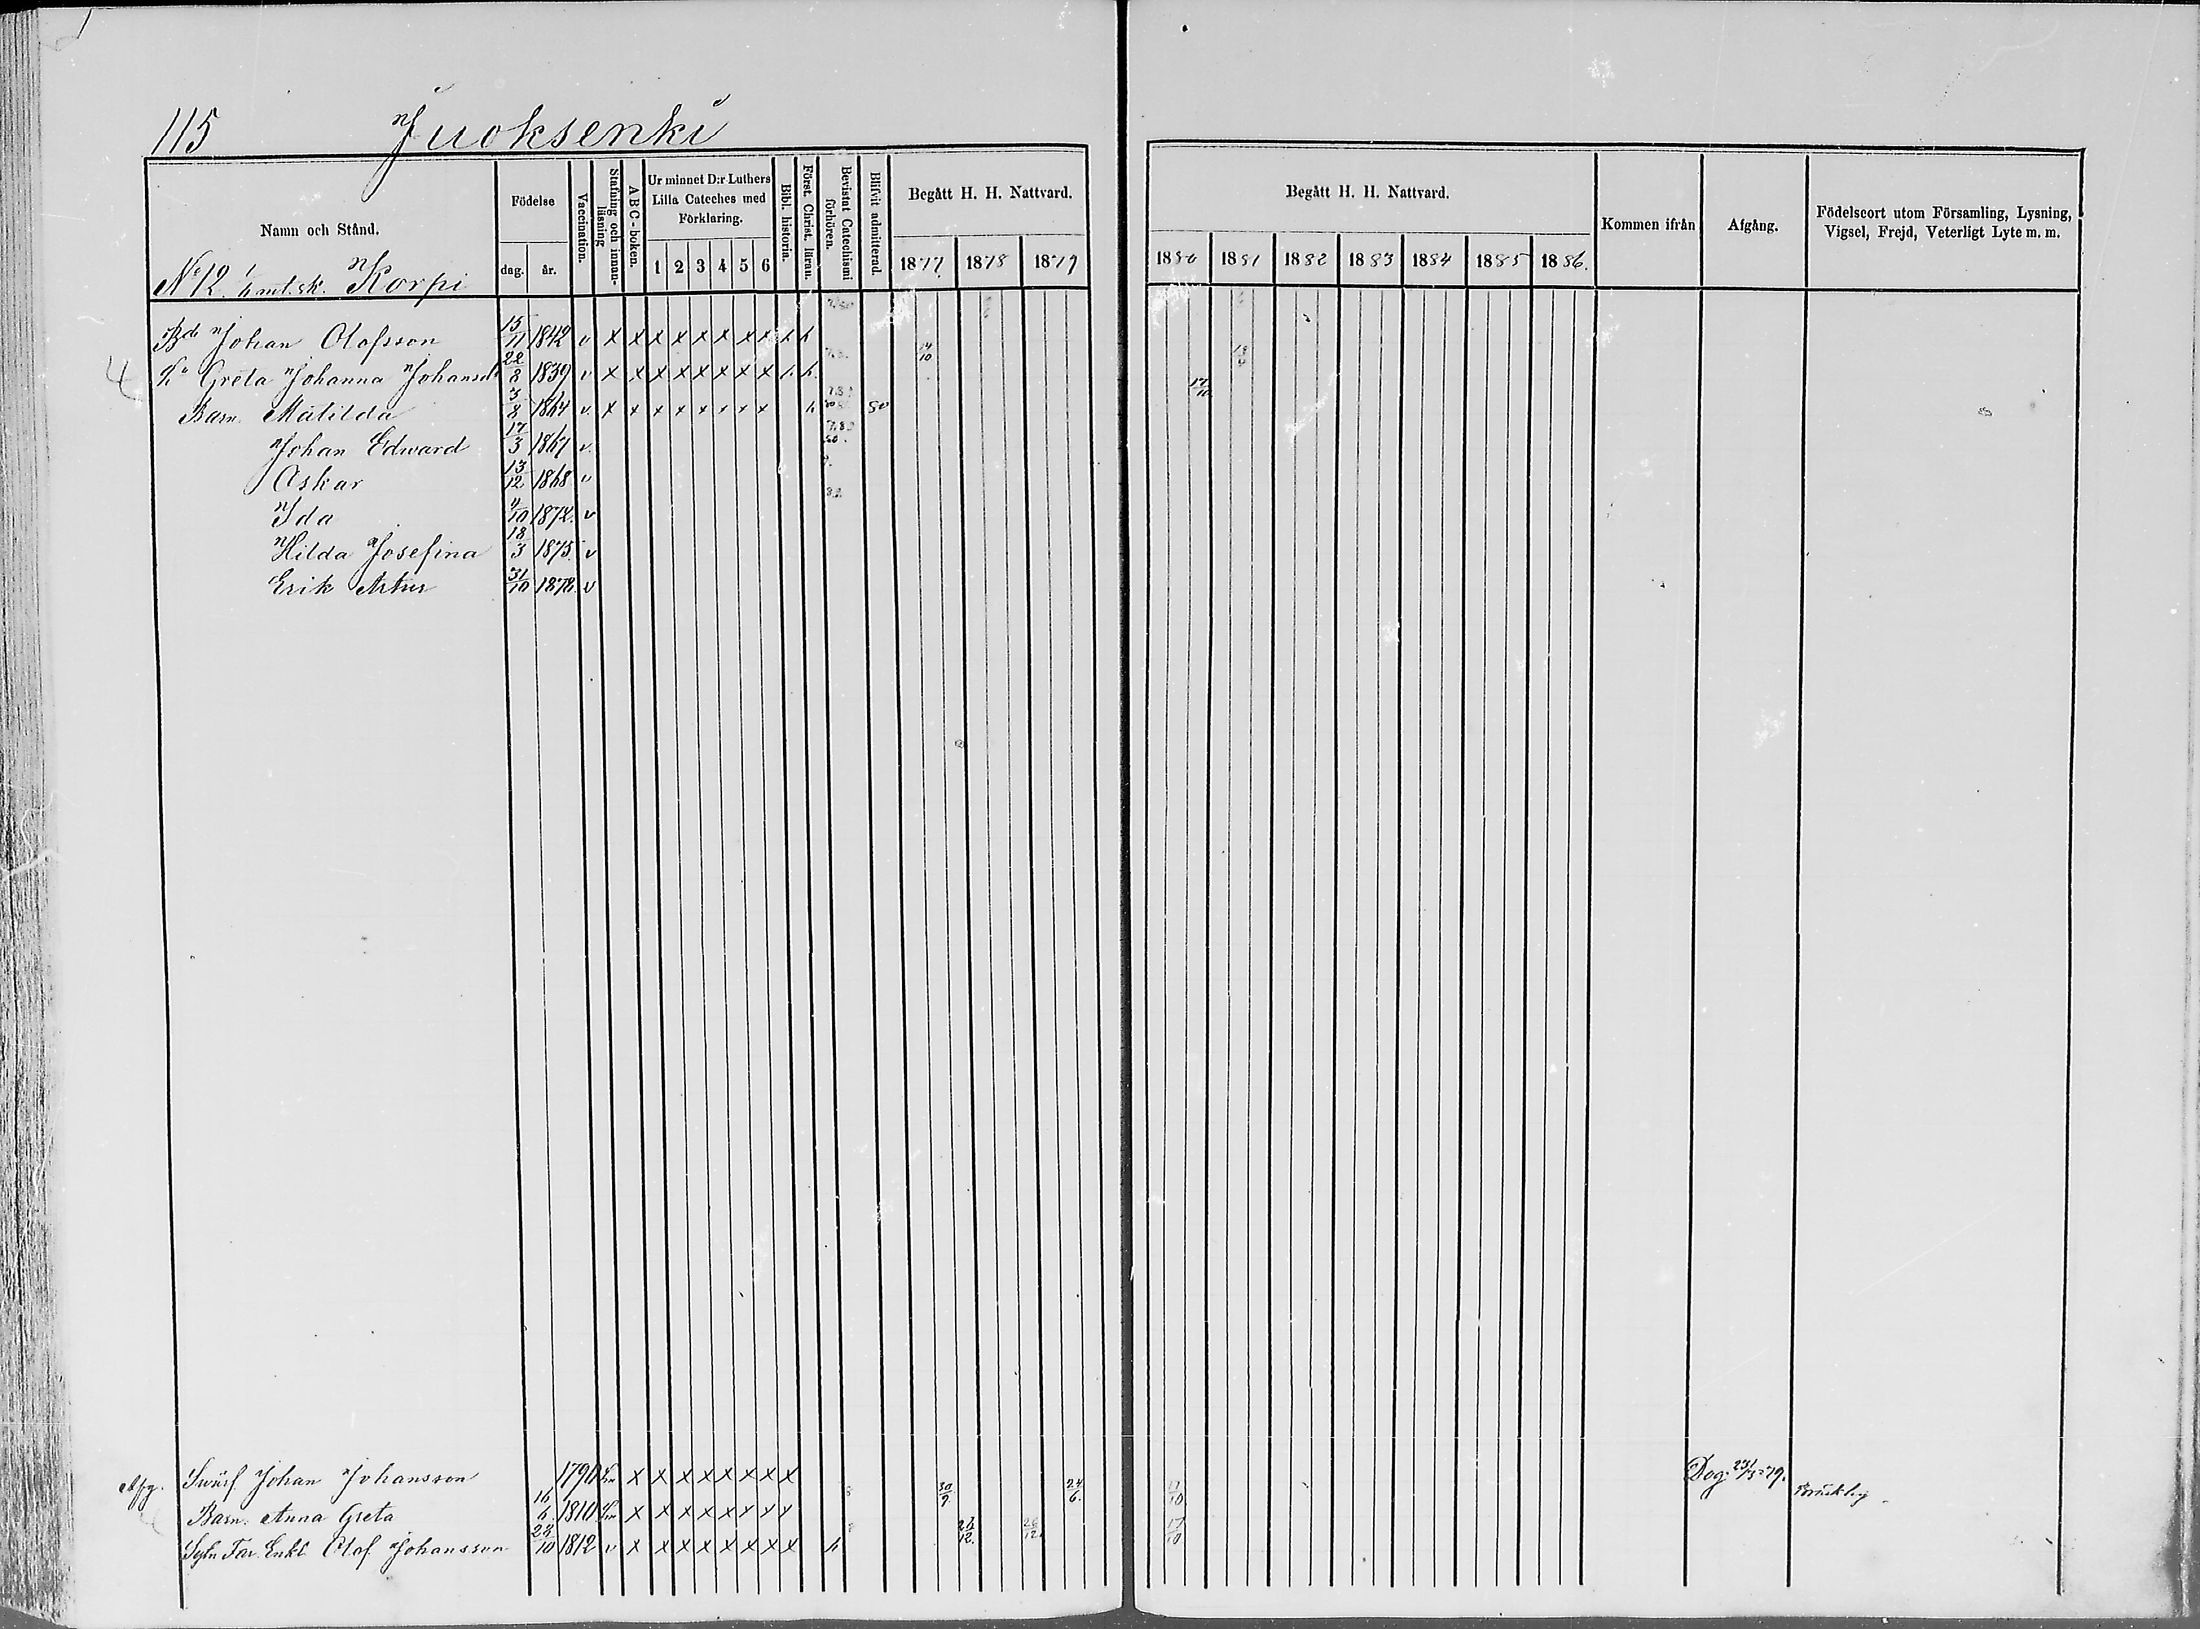 115 Juoksenki
Namn och Stånd.
Födelse
dag. år.
Vaccination.
Stafning och innan-läsning
ABC-boken.
Ur minnet D:r Luthers Lilla Cateches med Förklaring.
1 2 3 4 5 6
Bibl. historia.
Först. Christ. läran.
Bevistat Catechismi förhören.
Blifvit admitterad.
Begått H. H. Nattvard.
1877 1878 1879
Begått H. H. Nattvard.
1880 1881 1882 1883 1884 1885 1886.
Kommen ifrån
Afgång.
Födelseort utom Församling, Lysning, Vigsel, Frejd, Veterligt Lyte m. m.
No 12. mt. sk. Korpi
Bd Johan Olofsson 15/11 1842 v x x x x x x x x 14/10
4 Greta Johanna Johansdr 22/8 1839 v x x x x x x x x 17/10
Barn. Matilda 3/8 1864 v. x x x x x x x x 80
Johan Edward 17/3 1867 v.
Oskar 13/12 1868 v
Ida 1872. v
Hilda Josefina 18/3 1875. v
Erik Artur 31/10 1878. v
Johan Johansson 1790 x x x x x x x x Dog 79.
Barn. Anna Greta 16/6 1810 x x x x x x x x 30/9 24/6. 17/10
Enkl Olof Johansson 28/10 1812 v x x x x x x x x 26/12. 26/12 17/10